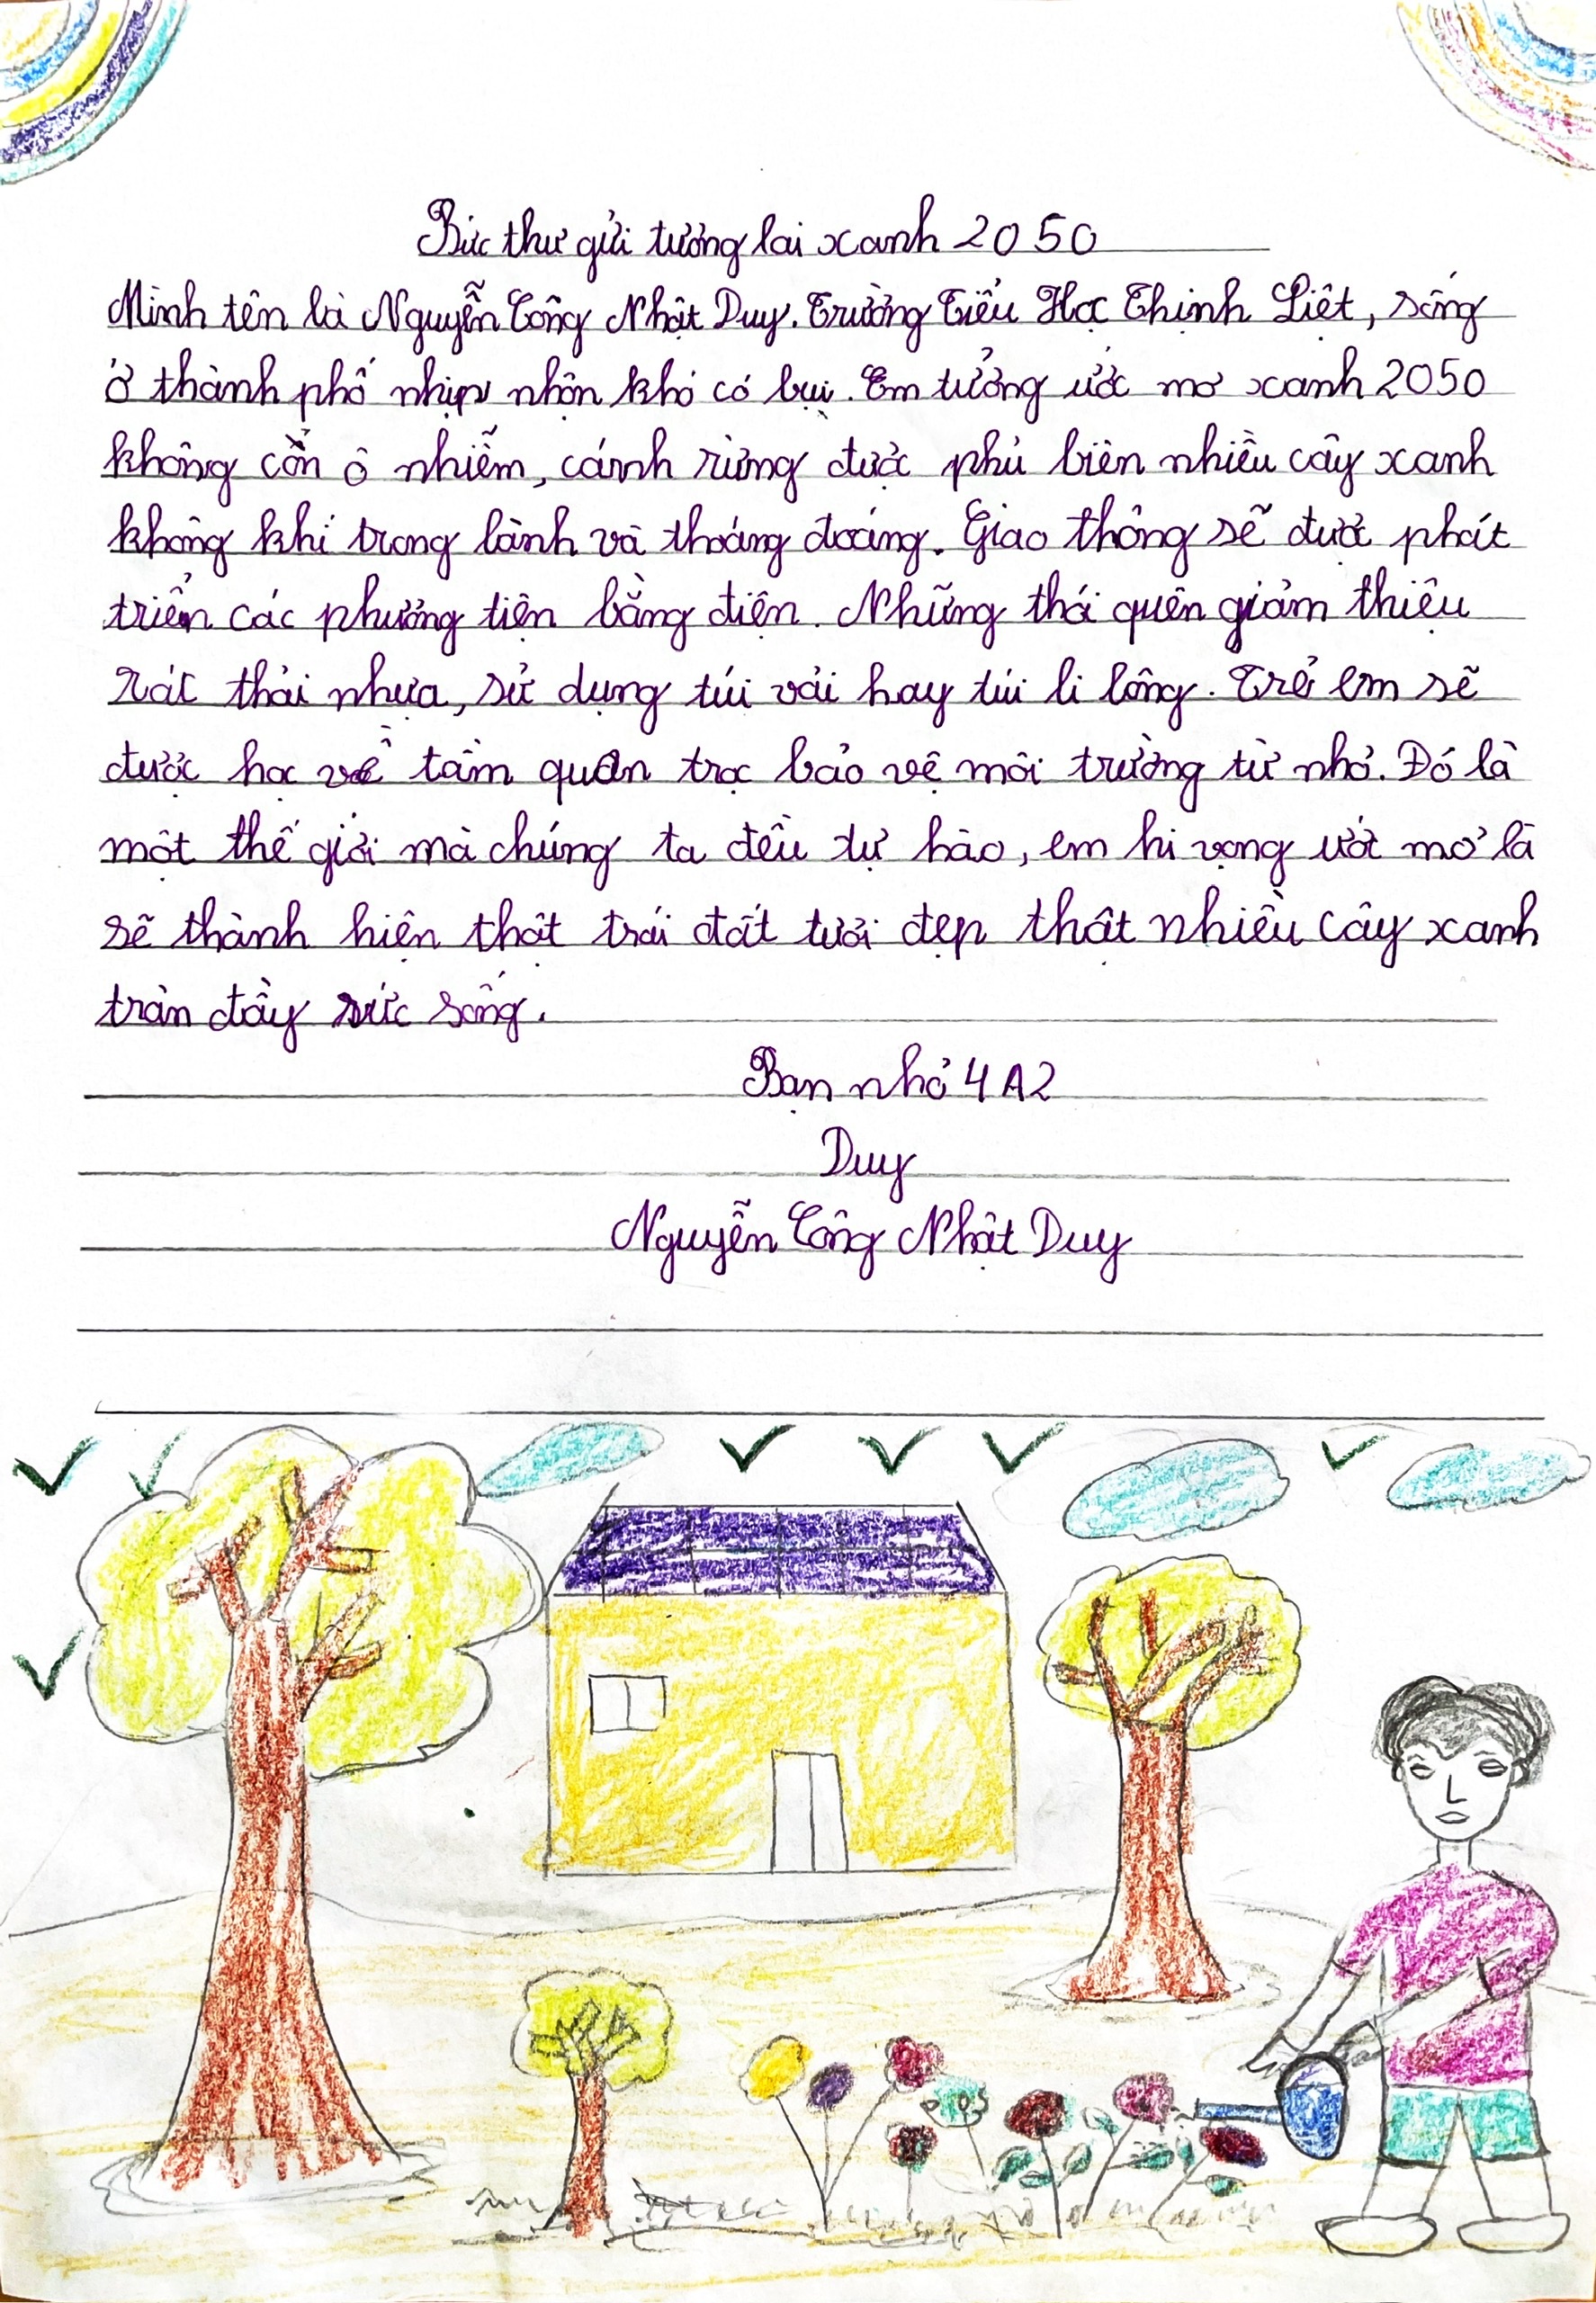 Bức thư gửi tương lai xanh 2050
Mình tên là Nguyễn Công Nhật Duy. Trường Tiểu Học Thịnh Liệt, sống
ở thành phố nhịp nhộn khó có bụi. Em tưởng ước mơ xanh 2050
không còn ô nhiễm, cánh rừng được phủ biên nhiều cây xanh
không khí trong lành và thoáng đoáng. Giao thông sẽ được phát
triển các phương tiện bằng điện. Những thói quên giảm thiệu
rác thải nhựa, sử dụng túi vải hay túi li lông. Trẻ em sẽ
được học về tầm quan trọc bảo vệ môi trường từ nhỏ. Đó là
một thế giới mà chúng ta đều tự hào, em hi vọng ướt mơ là
sẽ thành hiện thật trái đất tươi đẹp thật nhiều cây xanh
tràn đầy sức sống.
Bạn nhỏ 4A2
Duy
Nguyễn Công Nhật Duy